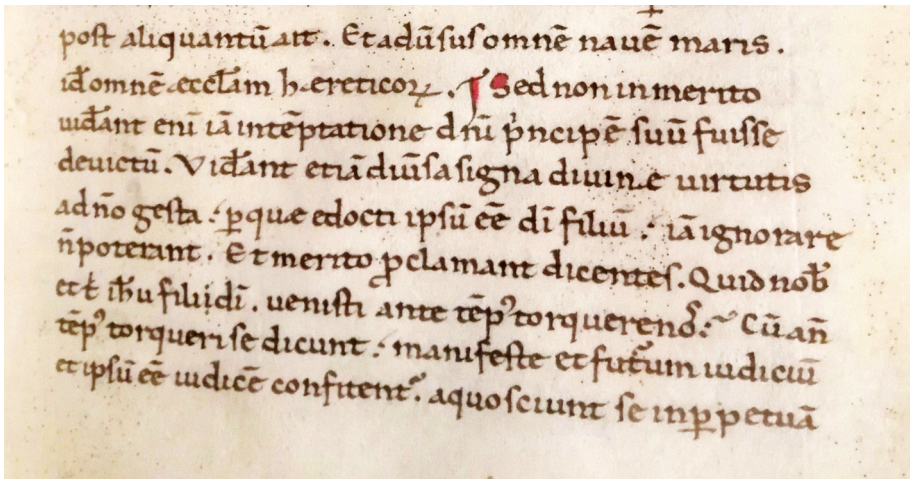 post aliquantū ait. Et adū sus omnē nauē maris.
id omnē ecctam hereticoꝝ. Sed non inmerito
uidant enī iā intēptatione dnī pncipē suū fuisse
deuictū. Vidant etiā diūsa signa diuine uirtutis
adño gesta : ꝑ que edocti ipsū eē dī filiū : iā ignorare
ñ poterant. Et merito ꝓclamant dicentes. Quid nob
et t ihu fili dī. uenisti ante tēpꝰ torquere nos : Cū añ
tēpꝰ torqueri se dicunt : manifeste et futurum iudiciū
et ipsū eē iudicē confitent. a quo sciunt se inꝑpetuā